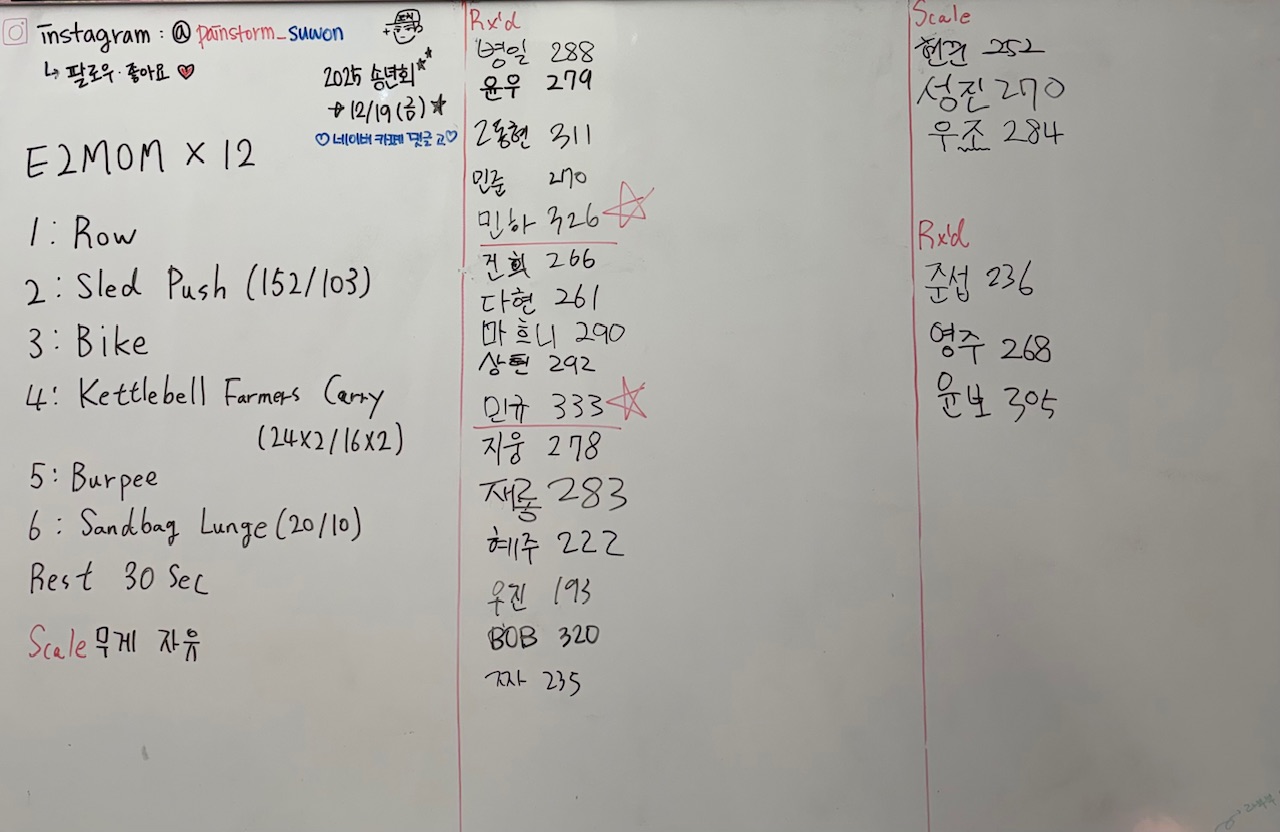 instagram : @painstorm_suwon
↳ 팔로우·좋아요 ♥
2025 송년회
→ 12/19(금)
♡네이버 카페 댓글 고♡
E2MOM X 12
1: Row
2: Sled Push (152/103)
3: Bike
4: Kettlebell Farmers Carry
(24X2/16X2)
5: Burpee
6: Sandbag Lunge (20/10)
Rest 30 Sec
Scale 무게 자유
Rx'd
병일 288
윤우 279
2동현 311
민준 270
민하 326
건희 266
다현 261
마흐니 290
상현 292
민규 333
지웅 278
재롱 283
혜주 222
우진 193
BOB 320
짜 235
Scale
현관 252
성진 270
우조 284
Rx'd
준섭 236
영주 268
윤보 305